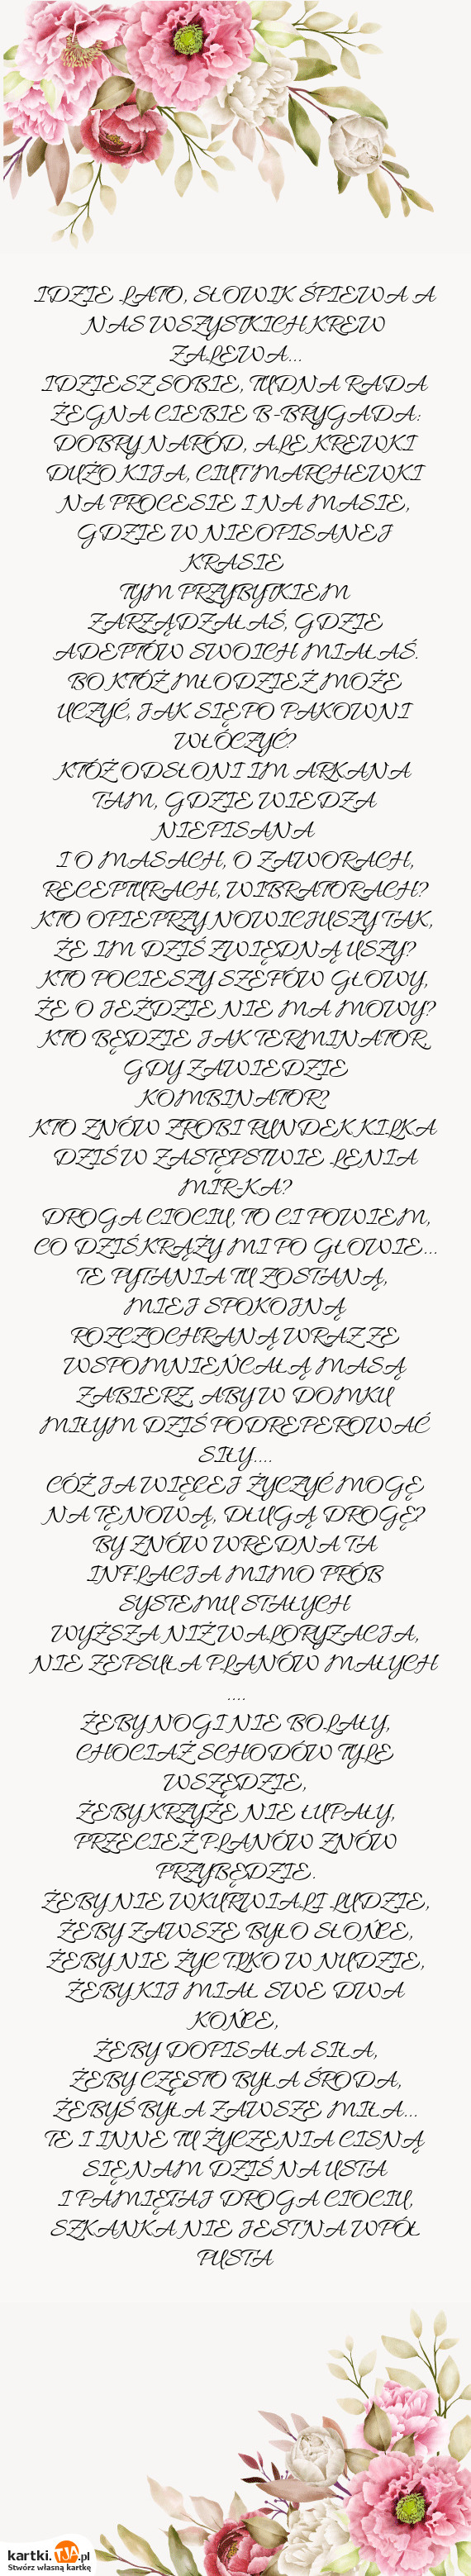 IDZIE LATO, SŁOWIK ŚPIEWA A
NAS WSZYSTKICH KREW
ZALEWA...
IDZIESZ SOBIE, TUDNA RADA
ŻEGNA CIEBIE B-BRYGADA:
DOBRY NARÓD, ALE KREWKI
DUŻO KIJA, CIUT MARCHEWKI
NA PROCESIE I NA MASIE,
GDZIE W NIEOPISANEJ
KRASIE
TYM PRZYBYTKIEM
ZARZĄDZAŁAŚ, GDZIE
ADEPTÓW SWOICH MIAŁAŚ.
BO KTÓŻ MŁODZIEŻ MOŻE
UCZYĆ, JAK SIĘ PO PAKOWNI
WŁÓCZYĆ?
KTÓŻ ODSŁONI IM ARKANA
TAM, GDZIE WIEDZA
NIEPISANA
I O MASACH, O ZAWORACH,
RECEPTURACH, WIBRATORACH?
KTO OPIEPRZY NOWICJUSZY TAK,
ŻE IM DZIŚ ZWIĘDNĄ USZY?
KTO POCIESZY SZEFÓW GŁOWY,
ŻE O JEŹDZIE NIE MA MOWY?
KTO BĘDZIE JAK TERMINATOR,
GDY ZAWIEDZIE
KOMBINATOR?
KTO ZNÓW ZROBI RUNDEK KILKA
DZIŚ W ZASTĘPSTWIE LENIA
MIR-KA?
DROGA CIOCIU, TO CI POWIEM,
CO DZIŚ KRĄŻY MI PO GŁOWIE...
TE PYTANIA TU ZOSTANĄ,
MIEJ SPOKOJNĄ
ROZCZOCHRANĄ WRAZ ZE
WSPOMNIEŃ CAŁĄ MASĄ
ZABIERZ, ABY W DOMKU
MIŁYM DZIŚ PODREPEROWAĆ
SIŁY....
CÓŻ JA WIĘCEJ ŻYCZYĆ MOGĘ
NA TĘ NOWĄ, DŁUGĄ DROGĘ?
BY ZNÓW WREDNA TA
INFLACJA MIMO PRÓB
SYSTEMU STAŁYCH
WYŻSZA NIŻ WALORYZACJA,
NIE ZEPSUŁA PLANÓW MAŁYCH
....
ŻEBY NOGI NIE BOLAŁY,
CHOCIAŻ SCHODÓW TYLE
WSZĘDZIE,
ŻEBY KRZYŻE NIE ŁUPAŁY,
PRZECIEŻ PLANÓW ZNÓW
PRZYBĘDZIE.
ŻEBY NIE WKURWIALI LUDZIE,
ŻEBY ZAWSZE BYŁO SŁOŃCE,
ŻEBY NIE ŻYC TLKO W NUDZIE,
ŻEBY KIJ MIAŁ SWE DWA
KOŃCE,
ŻEBY DOPISAŁA SIŁA,
ŻEBY CZĘSTO BYŁA ŚRODA,
ŻEBYŚ BYŁA ZAWSZE MIŁA...
TE I INNE TU ŻYCZENIA CISNĄ
SIĘ NAM DZIŚ NA USTA
I PAMIĘTAJ DROGA CIOCIU,
SZKANKA NIE JEST NA WPÓŁ
PUSTA
kartki.TJA.pl
Stwórz własną kartkę